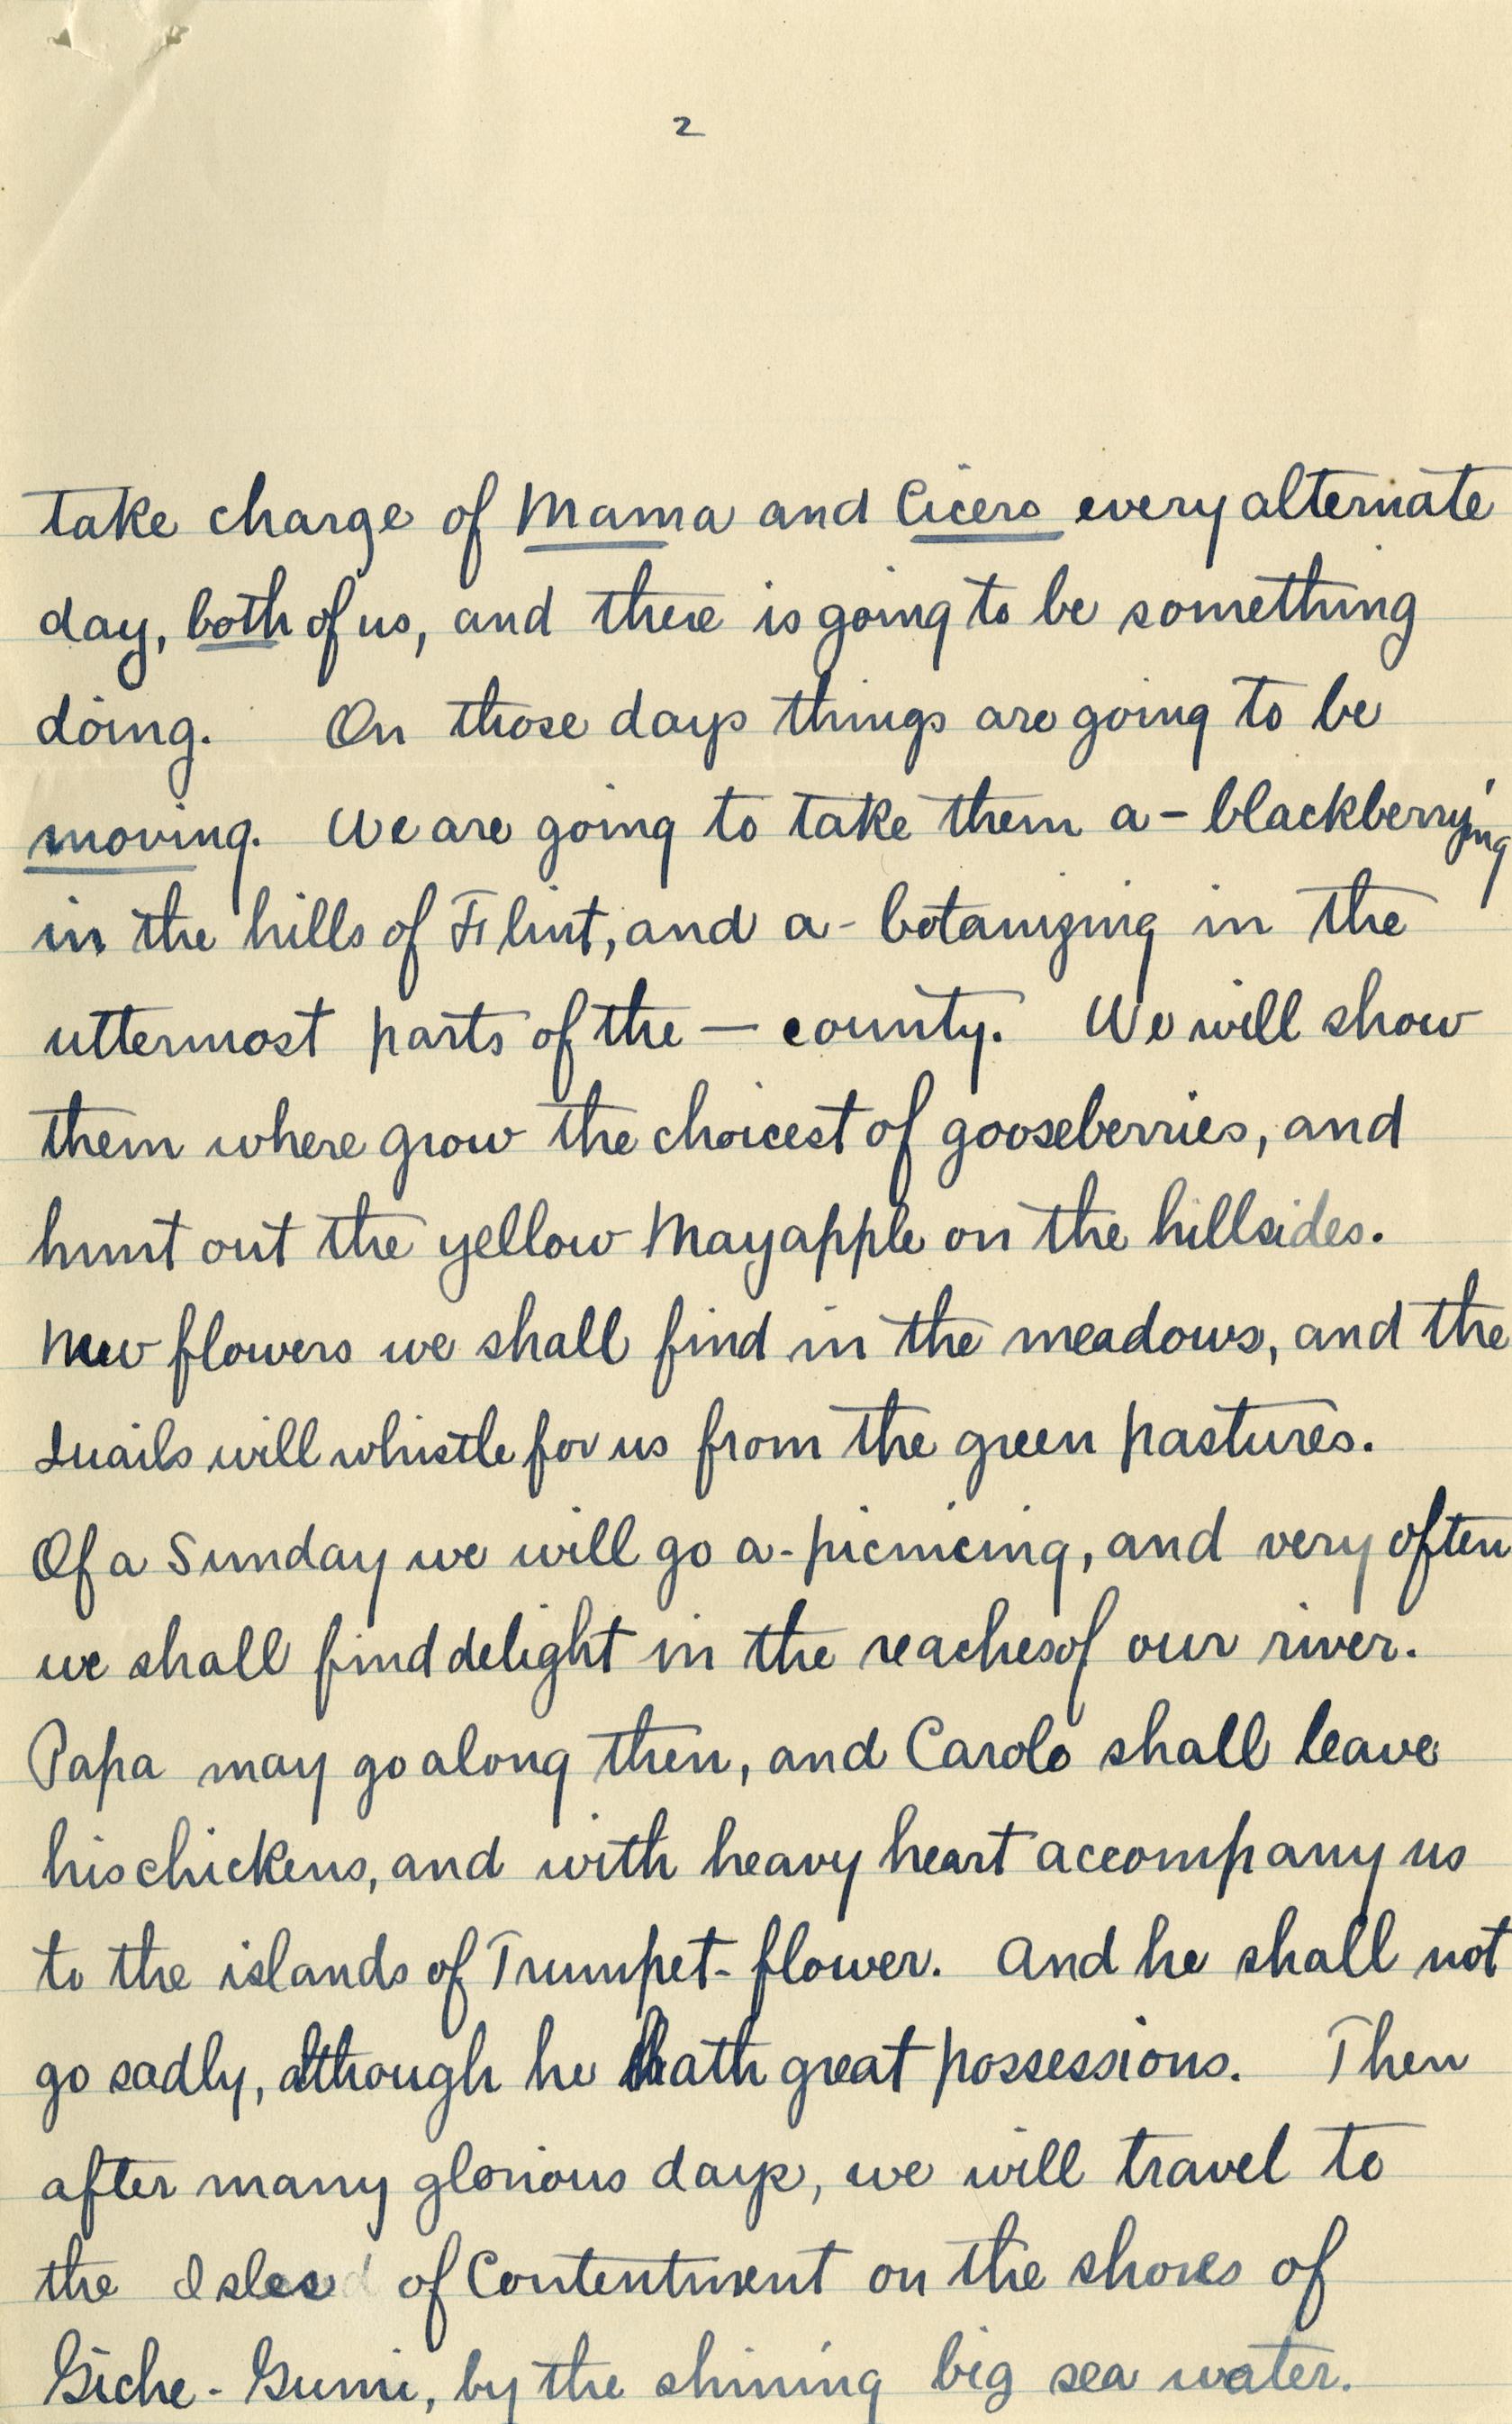 2
take charge of Mama and Cicero every alternate
day, both of us, and there is going to be something
doing. On those days things are going to be
moving. We are going to take them a-blackberrying
in the hills of Flint, and a-botanizing in the
uttermost parts of the — county. We will show
them where grow the choicest of gooseberries, and
hunt out the yellow Mayapple on the hillsides.
New flowers we shall find in the meadows, and the
quails will whistle for us from the green pastures.
Of a Sunday we will go a-picnicing, and very often
we shall find delight in the reaches of our river.
Papa may go along then, and Carolo shall leave
his chickens, and with heavy heart accompany us
to the islands of Trumpet-flower. And he shall not
go sadly, although he hath great possessions. Then
after many glorious days, we will travel to
the Isles of Contentment on the shores of
Giche-Gumi, by the shining big sea water.